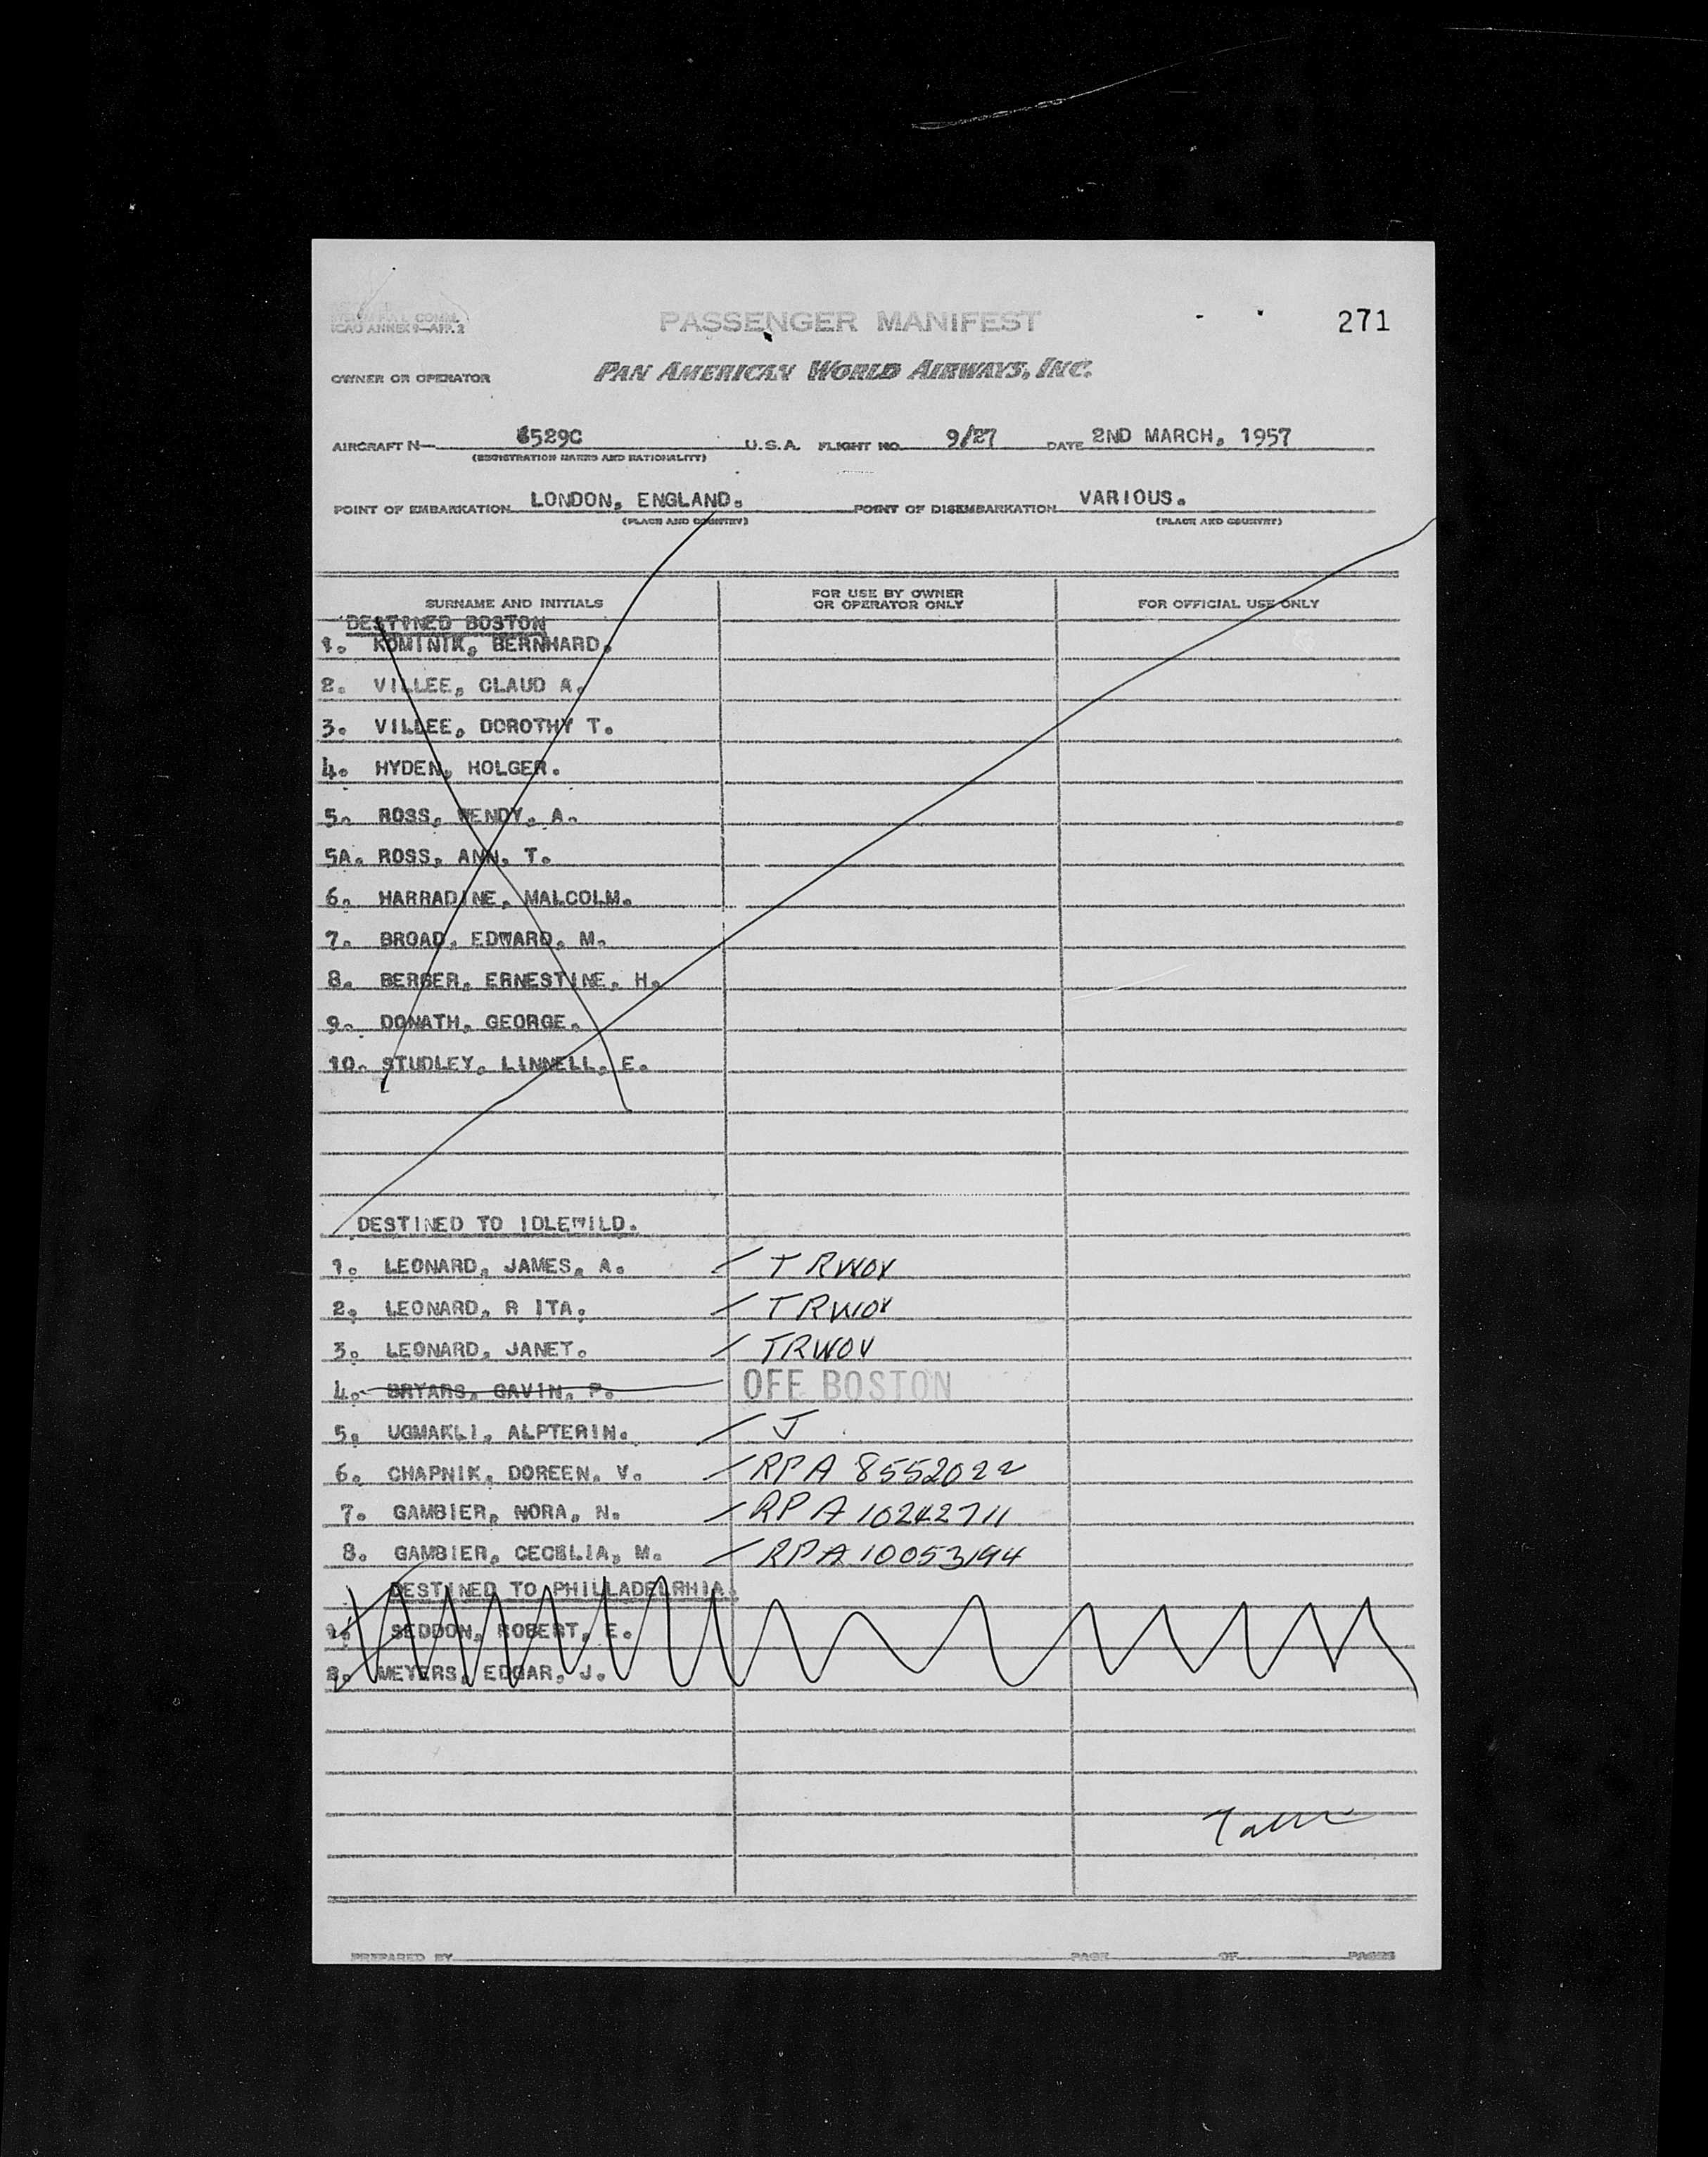 ICAO ANNEX 9—APP. 2
PASSENGER MANIFEST
271
OWNER OR OPERATOR
PAN AMERICAN WORLD AIRWAYS, INC.
AIRCRAFT N— 6529C U.S.A. FLIGHT NO. 9/27 DATE 2ND MARCH, 1957
(REGISTRATION MARKS AND NATIONALITY)
POINT OF EMBARKATION LONDON, ENGLAND. POINT OF DISEMBARKATION VARIOUS.
(PLACE AND COUNTRY) (PLACE AND COUNTRY)
SURNAME AND INITIALS FOR USE BY OWNER OR OPERATOR ONLY FOR OFFICIAL USE ONLY
DESTINED BOSTON
1. KOMINIK, BERNHARD.
2. VILLEE, CLAUD A.
3. VILLEE, DOROTHY T.
4. HYDEN, HOLGER.
5. ROSS, WENDY, A.
5A. ROSS, ANN, T.
6. HARRADINE, MALCOLM.
7. BROAD, EDWARD, M.
8. BERGER, ERNESTINE, H.
9. DONATH, GEORGE.
10. STUDLEY, LINNELL, E.
DESTINED TO IDLEWILD.
1. LEONARD, JAMES, A. / TRWOV
2. LEONARD, R ITA. / TRWOV
3. LEONARD, JANET. / TRWOV
4. BRYARS, GAVIN, P. OFF BOSTON
5. UGMAKLI, ALPTERIN. / J
6. CHAPNIK, DOREEN, V. / RPA 8552022
7. GAMBIER, NORA, N. / RPA 10242711
8. GAMBIER, CECELIA, M. / RPA 10053194
DESTINED TO PHILLADELPHIA.
1. SEDDON, ROBERT, E.
2. MEYERS, EDGAR, J.
PREPARED BY PAGE OF PAGES